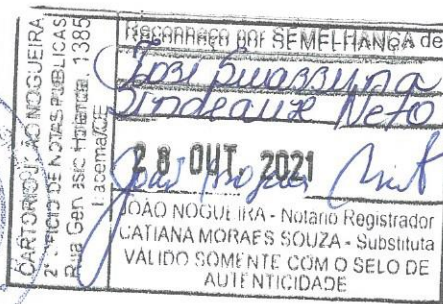 CARTORIO JOÃO NOGUEIRA
2º OFICIO DE NOTAS PUBLICAS
Rua Gen 1385
Iracema/CE
Reconheço por SEMELHANÇA de
José
Neto
28 OUT. 2021
JOÃO NOGUEIRA - Notário Registrador
CATIANA MORAES SOUZA - Substituta
VÁLIDO SOMENTE COM O SELO DE
AUTENTICIDADE